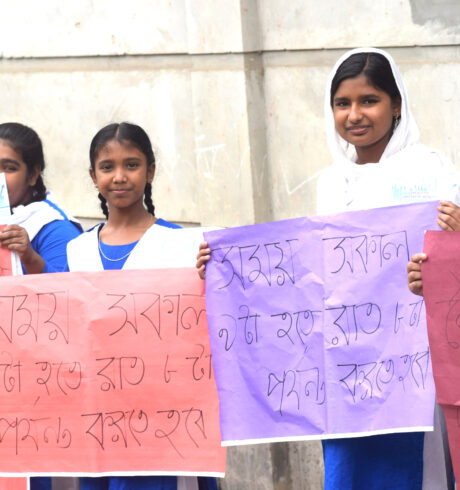 সময় সকাল
টা হতে রাত ৮ টা
পর্যন্ত করতে হবে
সময় সকাল
৯টা হতে রাত ৮ টা
পর্যন্ত করতে হবে